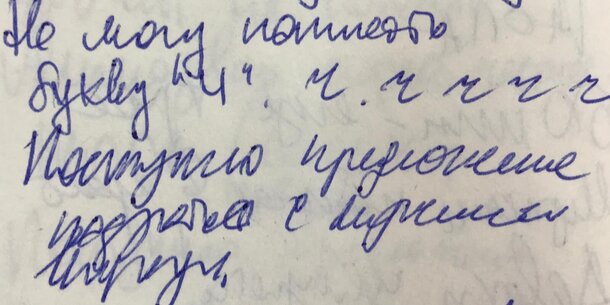 Не могу написать
букву "Ч". Ч. ч ч ч ч ч
Поступило предложение
подраться с